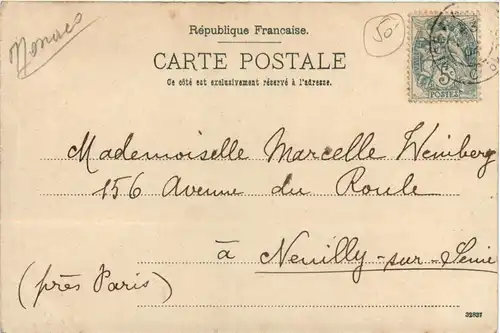 Monaco
République Francaise.
50
CARTE POSTALE
Ce côté est exclusivement réservé à l'adresse.
5
POSTES
Mademoiselle Marcelle Weinberg
156 Avenue du Roule
à Neuilly-sur-Seine
(près Paris)
32827